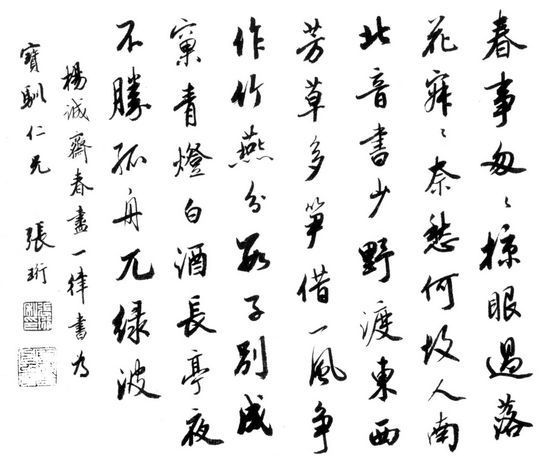 春事匆〻掠眼過落
花寂〻奈愁何故人南
北音書少野渡東西
芳草多笋借一風争
作竹燕分數子別成
窠青燈白酒長亭夜
不勝孤舟兀緑波
楊誠齋春盡一律書為
寶馴仁兄 張珩